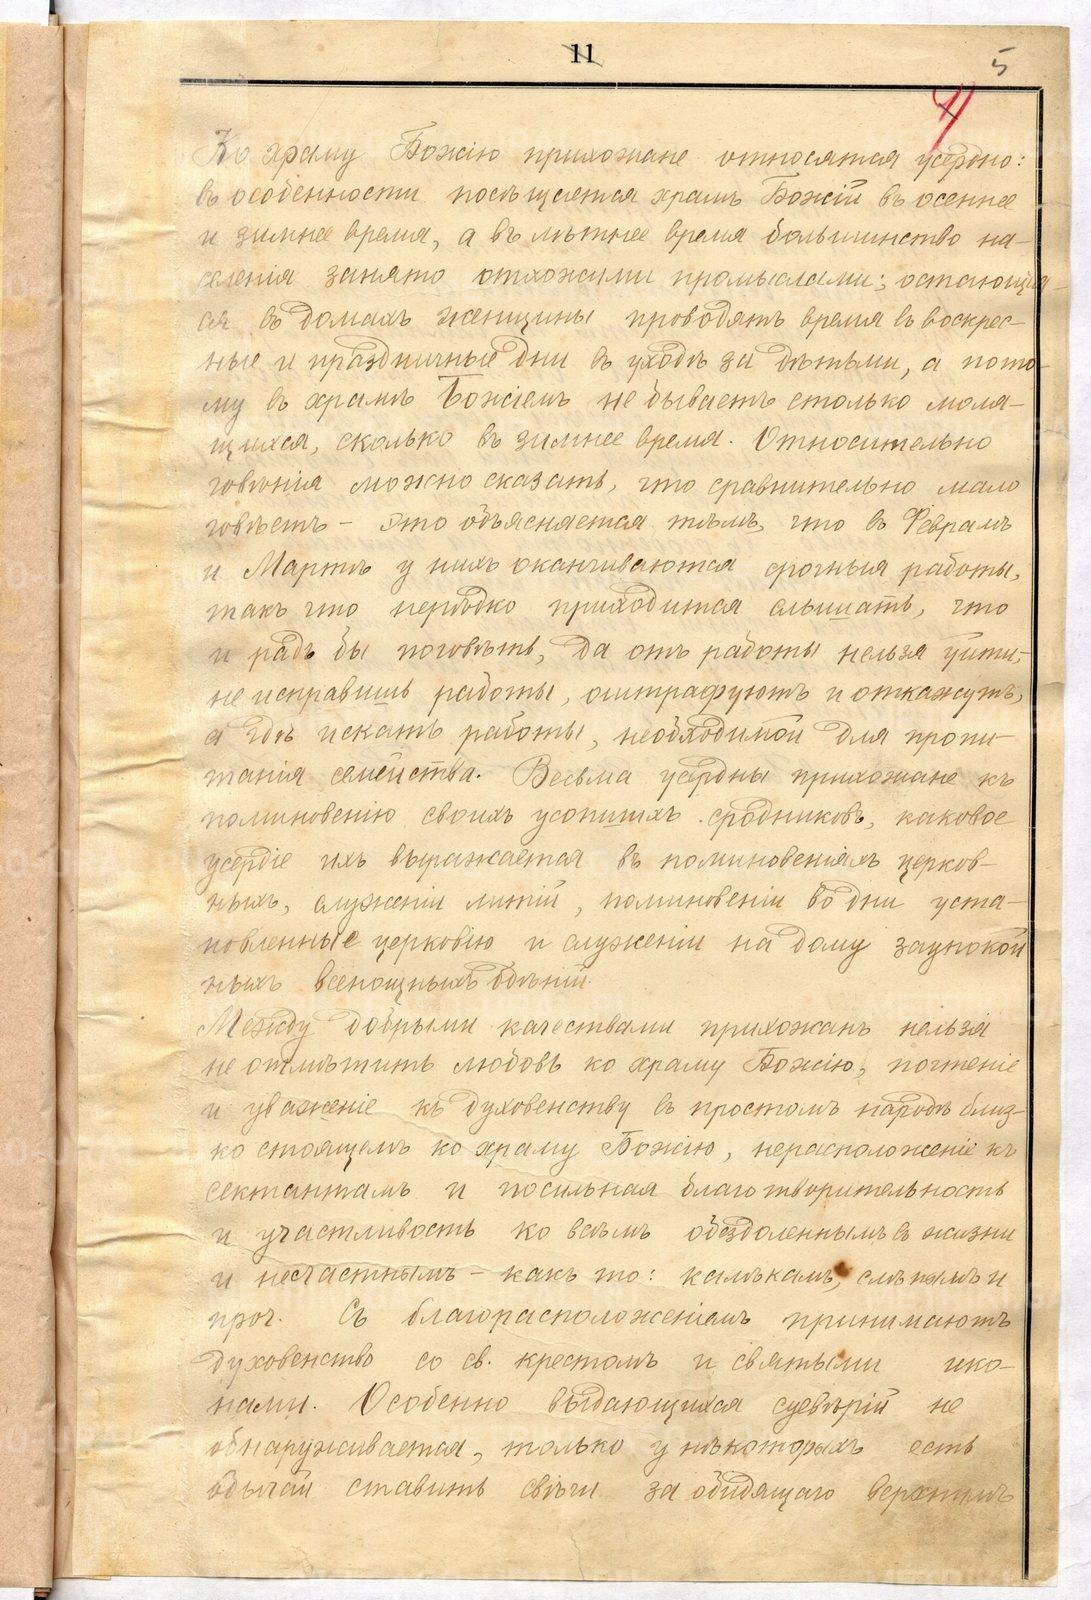 11
5
Ко храму Божію прихожане относятся усердно:
въ особенности посѣщается храмъ Божій въ осеннее
и зимнее время, а въ лѣтнее время большинство на-
селенія занято отхожими промыслами; остающія-
ся въ домахъ женщины проводятъ время въ воскрес-
ные и праздничные дни въ уходѣ за дѣтьми, а пото-
му въ храмѣ Божіемъ не бываетъ столько моля-
щихся, сколько въ зимнее время. Относительно
говѣнія можно сказать, что сравнительно мало
говѣетъ – это объясняется тѣмъ, что въ Февралѣ
и Мартѣ у нихъ оканчиваются срочныя работы,
такъ что нерѣдко приходится слышать, что
и радъ бы поговѣть, да отъ работы нельзя уйти;
не исправишь работы, оштрафуютъ и откажутъ,
а гдѣ искать работы, необходимой для пропи-
танія семейства. Весьма усердны прихожане къ
поминовенію своихъ усопшихъ сродниковъ, каковое
усердіе ихъ выражается въ поминовеніяхъ церков-
ныхъ, служеніи литій, поминовеніи во дни уста-
новленные церковію и служеніи на дому заупокой
ныхъ всенощныхъ бдѣній.
Между добрыми качествами прихожанъ нельзя
не отмѣтить любовь ко храму Божію, почтеніе
и уваженіе къ духовенству въ простомъ народѣ близ-
ко стоящемъ ко храму Божію, нерасположеніе къ
сектантамъ и посильная благотворительность
и участливость ко всѣмъ обездоленнымъ въ жизни
и несчастнымъ – какъ то: калѣкамъ, слѣпымъ и
проч. Съ благорасположеніемъ принимаютъ
духовенство со св. крестомъ и святыми ико-
нами. Особенно выдающихся суевѣрій не
обнаруживается, только у нѣкоторыхъ есть
обычай ставить свѣчи за обидящаго верхнимъ